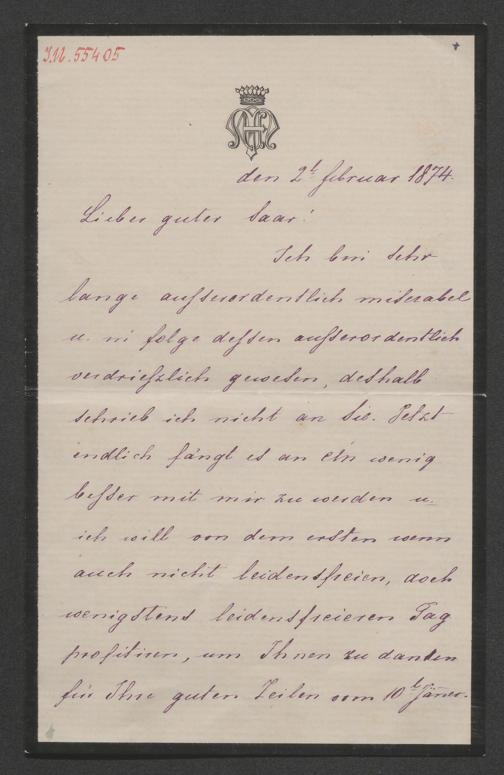 I.N. 55405
den 2t. februar 1874.
Lieber guter Saar!
Ich bin sehr
lange aufserordentlich miserabel
u. in folge defsen aufserordentlich
verdriefzlich gewesen, deshalb
schrieb ich nicht an Sie. Jetzt
endlich fängt es an ein wenig
befser mit mir zu werden u.
ich will von dem ersten wenn
auch nicht leidensfreien, doch
wenigstens leidensfreieren Tag
profitiren, um Ihnen zu danken
für Ihre guten Zeilen vom 10t. Jäner.